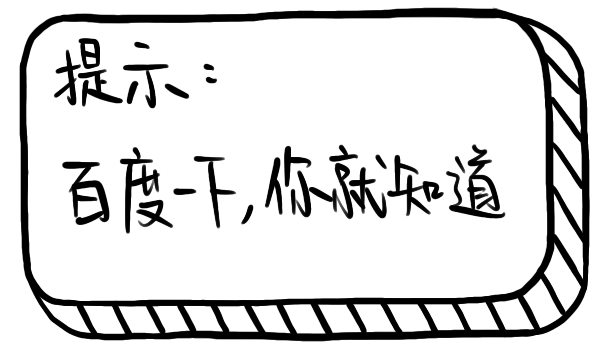 提示：
百度一下,你就知道